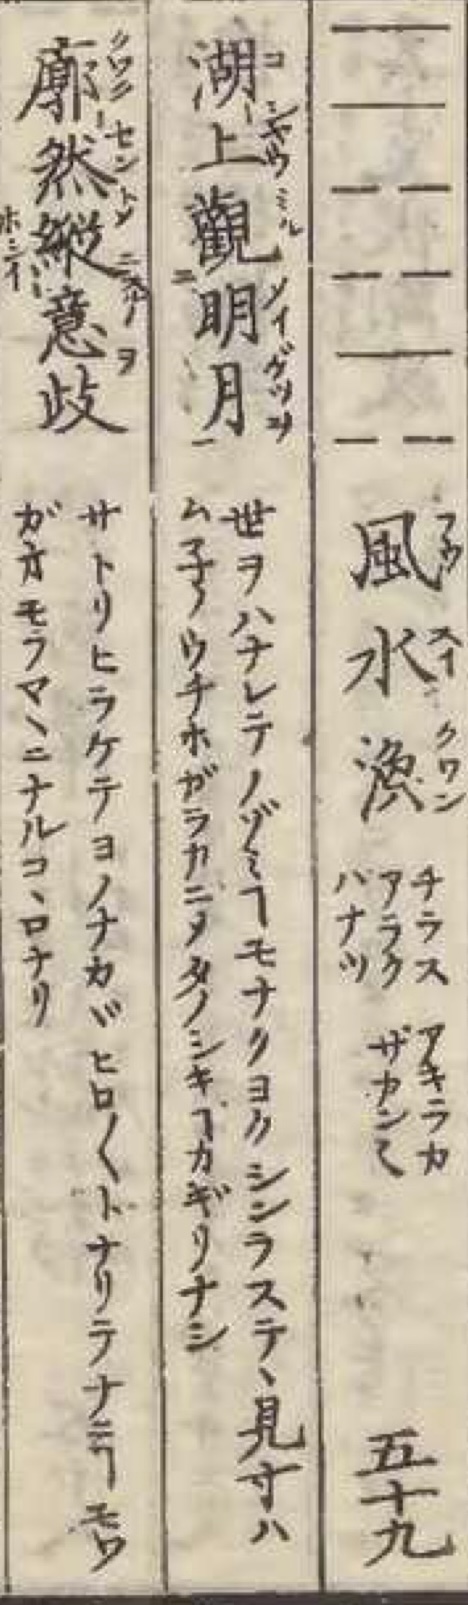 風水渙
フウ スイ クワン
チラス
アラク
バナツ
アキラカ
ザカンニ
五十九
湖上觀明月
コ シヤウ ミル メイゲツヲ
世ヲハナレテノゾミヿモナクヨクシンヲステヽ見寸ハ
ムネノウチホガラカニメタノシキヿカギリナシ
廓然縱意歧
サトリヒラケテヨノナカヾヒロ〱トナリテナニヿモワ
ガオモフマヽニナルコヽロナリ